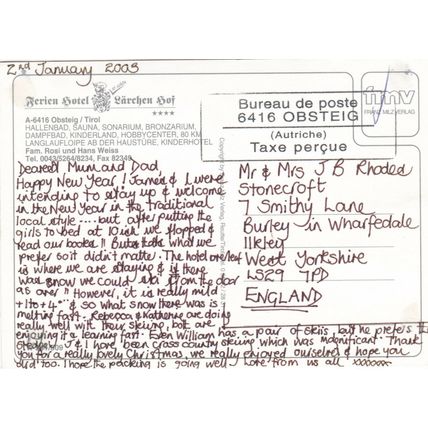 2nd January 2003
Ferien Hotel Lärchen Hof
****
A-6416 Obsteig / Tirol
HALLENBAD, SAUNA, SONARIUM, BRONZARIUM,
DAMPFBAD, KINDERLAND, HOBBYCENTER, 80 KM
LANGLAUFLOIPE AB DER HAUSTÜRE, KINDERHOTEL
Fam. Rosi und Hans Weiss
Tel. 0043/5264/8234, Fax
Bureau de poste
6416 OBSTEIG
(Autriche)
Taxe perçue
FRANZ MILZ VERLAG
Dearest Mum and Dad
Happy New Year! James & I were
intending to stay up & welcome
in the New Year in the traditional
local style --- but after putting the
girls to bed at 10 ish we flopped &
read our books!! But that's what we
prefer so it didn't matter. The hotel overleaf
is where we are staying & if there
was snow we could ski from the door
However, it is really mild
& so what snow there was is
melting fast. Rebecca & Katherine are doing
really well with their skiing, both are
enjoying it & learning fast. Even William has a pair of skiis, but he prefers the
J & I have been cross country skiing which was magnificent. Thank
you for a really lovely Christmas, we really enjoyed ourselves & hope you
did too. Hope the packing is going well. Love from us all xxxxxx
Mr & Mrs J B Rhodes
Stonecroft
7 Smithy Lane
Burley in Wharfedale
Ilkley
West Yorkshire
LS29 7PD
ENGLAND